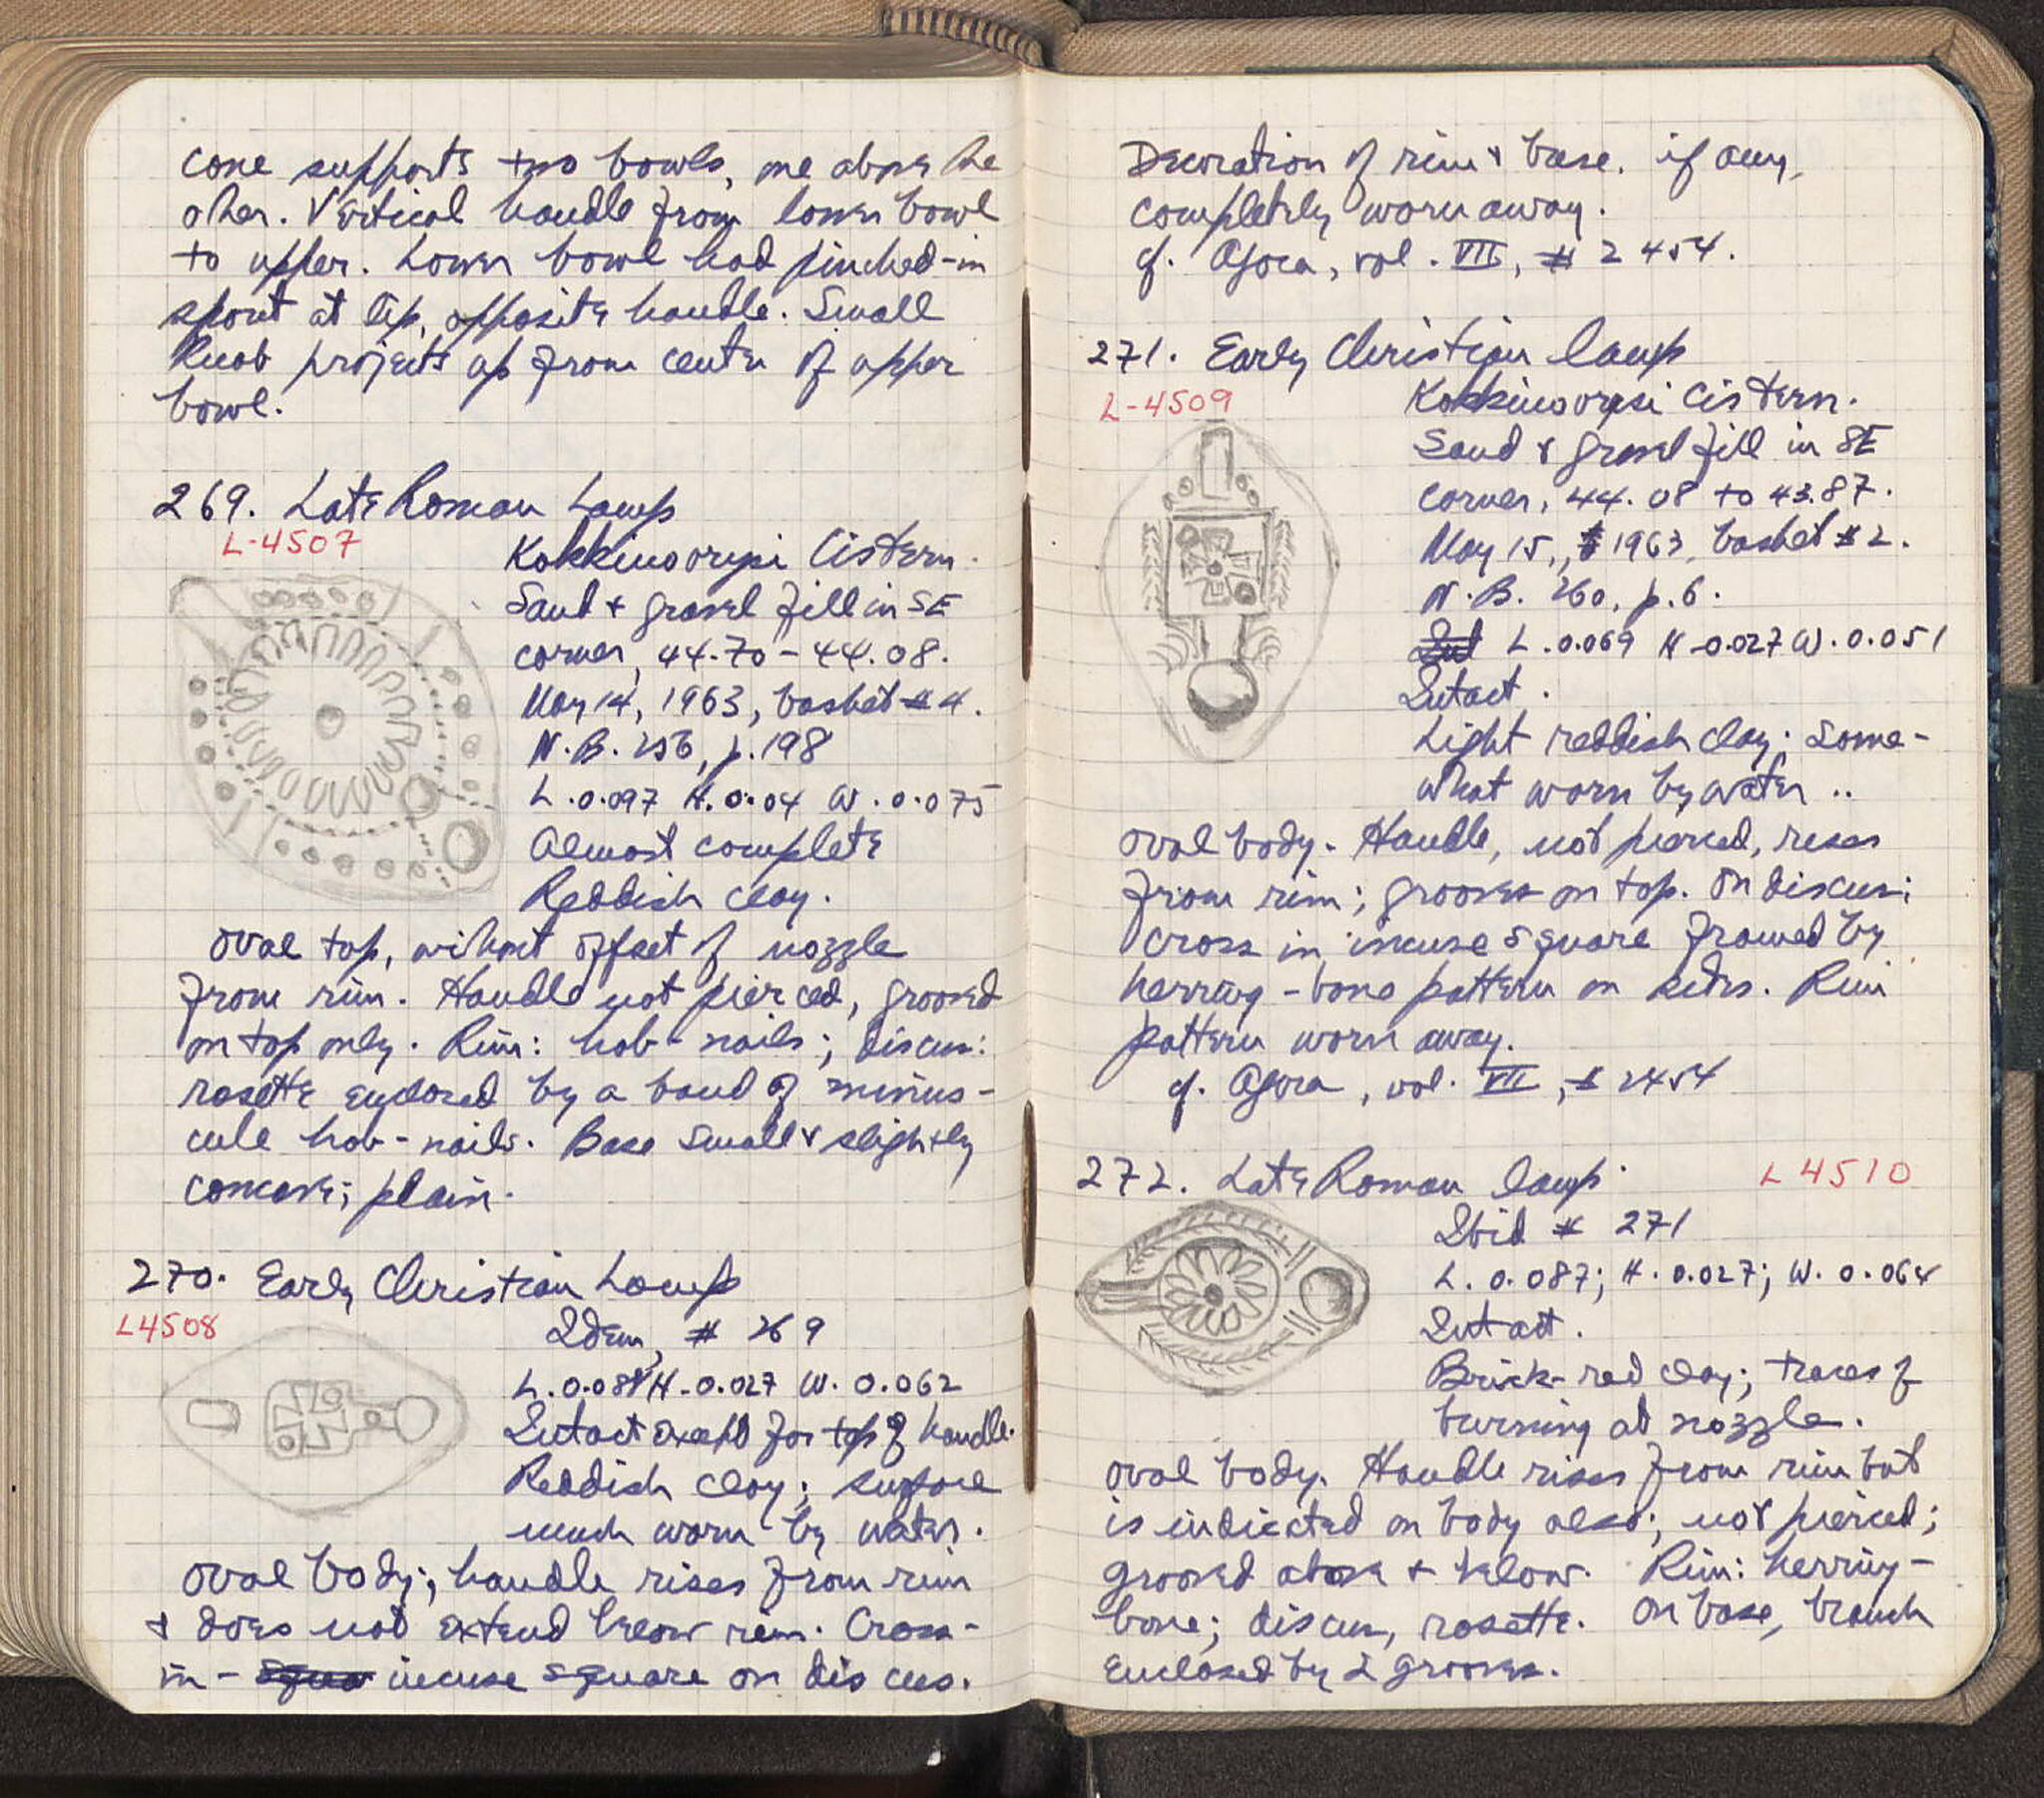 cone supports two bowls, one above the
other. Vertical handle from lower bowl
to upper. Lower bowl had pinched-in
spout at lip, opposite handle. Small
knob projects up from center of upper
bowl.
269. Late Roman Lamp
L-4507
Kokkinovrysi Cistern.
Sand + gravel fill in SE
corner, 44.70 - 44.08.
May 14, 1963, basket # 4.
N.B. 256, p. 198
L. 0.097 H. 0.04 W. 0.075
Almost complete
Reddish clay.
Oval top, without offset of nozzle
from rim. Handle not pierced, grooved
on top only. Rim: hob-nails; discus:
rosette enclosed by a band of minus-
cule hob-nails. Base small & slightly
concave; plain.
270. Early Christian Lamp
L4508
Idem, # 269
H. 0.027 W. 0.062
Intact except for top of handle.
Reddish clay; surface
much worn by water.
Oval body; handle rises from rim
+ does not extend below rim. Cross-
in - incuse square on discus.
Decoration of rim & base, if any,
completely worn away.
cf. Agora, vol. VII, # 2454.
271. Early Christian lamp
L-4509
Kokkinovrysi Cistern.
Sand & gravel fill in SE
corner, 44.08 to 43.87.
May 15, 1963, basket # 2.
N.B. 260, p. 6.
L. 0.069 H - 0.027 W. 0.051
Intact.
Light reddish clay; some-
what worn by water ..
Oval body. Handle, not pierced, rises
from rim; grooves on top. On discus:
cross in incuse square framed by
herring-bone pattern on sides. Rim
pattern worn away.
cf. Agora, vol. VII, # 2454
272. Late Roman lamp
L 4510
Ibid # 271
L. 0.087; H. 0.027; W. 0.064
Intact.
Brick-red clay; traces of
burning at nozzle.
Oval body. Handle rises from rim but
is indicated on body also; not pierced;
grooved above + below. Rim: herring-
bone; discus, rosette. On base, branch
enclosed by 2 grooves.